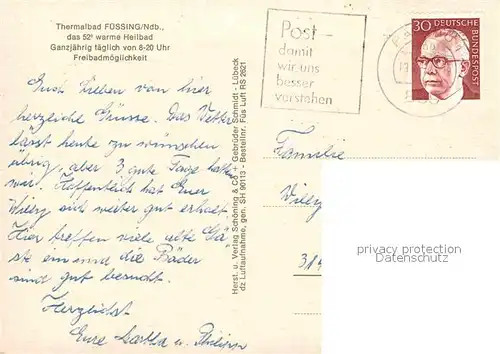 Thermalbad FÜSSING/Ndb.,
das 52° warme Heilbad
Ganzjährig täglich von 8-20 Uhr
Freibadmöglichkeit
Euch Lieben von hier
herzliche Grüsse. Das Wetter
lässt heute zu wünschen
übrig, aber 3 gute Tage hatten
wir. Hoffentlich hat Euer
Willy sich weiter gut erholt.
Hier treffen viele alte Gä-
ste ein und die Bäder
sind gut besucht.
Herzlichst
Eure Martha u. Philipp
Herst. u. Verlag Schöning & Co + Gebrüder Schmidt - Lübeck
dz Luftaufnahme, gen. SH 90113 - Bestellnr. Füs Luft RS 2621
Post -
damit
wir uns
besser
verstehen
30 DEUTSCHE
BUNDESPOST
Familie
Willy
314
privacy protection